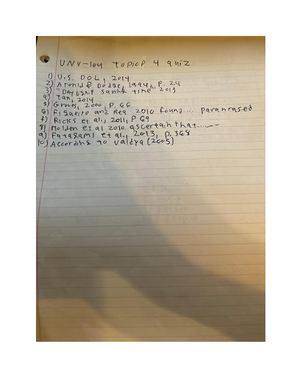 UNV-104 Topic 4 quiz
1) U.S. DOL, 2014
2) Dodge, P. 24
3) Daylight time 2015
4) Tan, 2014
5) Gross, 2000, P. 66
6) and Rea 2010 found.... paraphrased
7) Ricks et al., 2011, P 69
8) Holden et al 2010 ascertain that......
9) et al., 2013, P. 368
10) According to Valdya (2005)